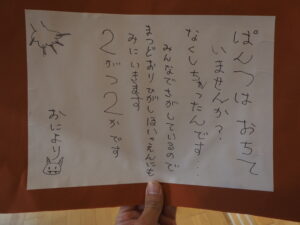 ぱんつは おちて
いませんか?
なくしちゃったんです…
みんなでさがしているので
まつどおり ひがしほいくえんにも
みにいきます
2がつ2かです
おにより